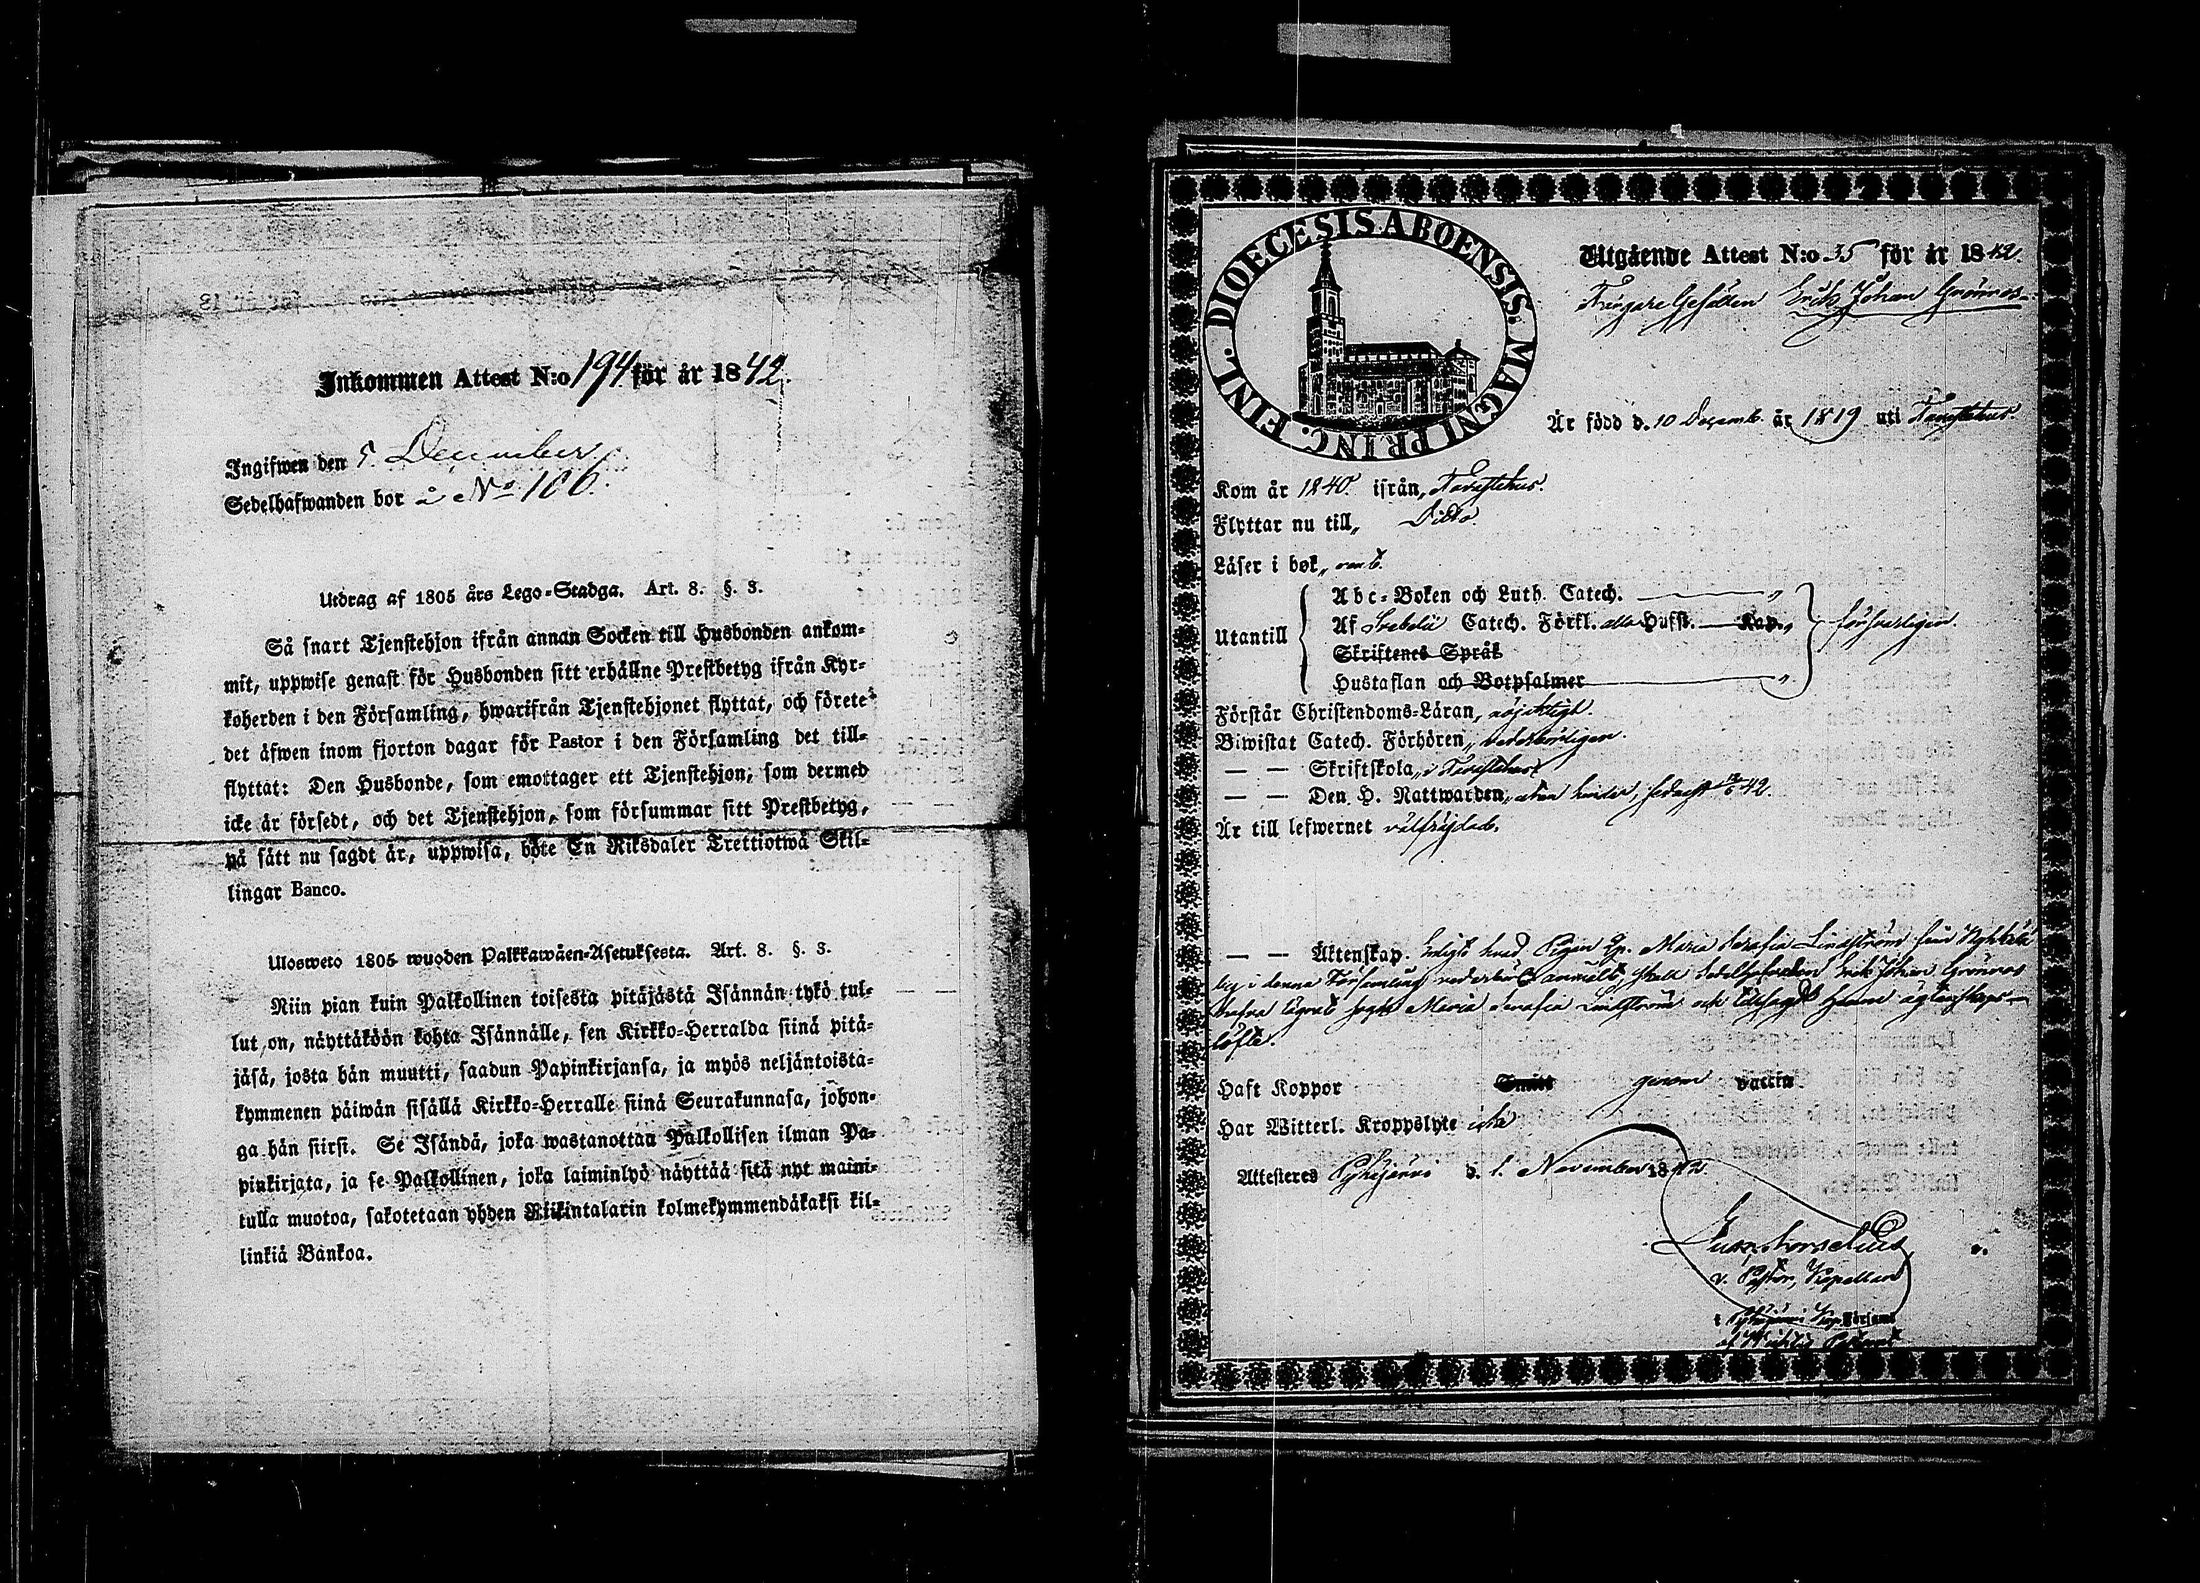 Inkommen Attest N:o 194 för år 1842.
Ingifwen den 5. December
Sedelhafwanden bor å No 106.
Utdrag af 1805 års Lego-Stadga. Art. 8. §. 3.
Så snart Tjenstehjon ifrån annan Socken till Husbonden ankom-
mit, uppwise genast för Husbonden sitt erhållne Prestbetyg ifrån Kyr-
koherden i den Församling, hwarifrån Tjenstehjonet flyttat, och förete
det äfwen inom fjorton dagar för Pastor i den Församling det till-
flyttat: Den Husbonde, som emottager ett Tjenstehjon, som dermed
icke är försedt, och det Tjenstehjon, som försummar sitt Prestbetyg,
på sätt nu sagdt är, uppwisa, böte En Riksdaler Trettiotwå Skil-
lingar Banco.
Ulosweto 1805 wuoden Palkkawäen-Asetuksesta. Art. 8. §. 3.
Niin pian kuin Palkollinen toisesta pitäjästä Isännän tykö tul-
lut on, näyttäköön kohta Isännälle, sen Kirkko-Herralda siinä pitä-
jäsä, josta hän muutti, saadun Papinkirjansa, ja myös neljäntoista-
kymmenen päiwän sisällä Kirkko-Herralle siinä Seurakunnasa, johon-
ga hän siirsi. Se Isändä, joka wastanottaa Palkollisen ilman Pa-
pinkirjata, ja se Palkollinen, joka laiminlyö näyttää sitä nyt maini-
tulla muotoa, sakotetaan yhden Riikintalarin kolmekymmendäkaksi kil-
linkiä Bankoa.
DIOECESIS ABOENSIS. MAGNI PRINC. FINL.
Utgående Attest N:o 35 för år 1842.
Gesällen Erik Johan Grönroos
Är född d. 10 Decemb. år 1819 uti Tavastehus.
Kom år 1840. ifrån, Tavastehus.
Flyttar nu till, Ditto.
Läser i bok, rent.
Abc-Boken och Luth. Catech.
Utantill Af Svebelii Catech. Förkl. alla Hufst. Kap. försvarligen
Skriftenes Språk
Hustaflan och Botpsalmer
Förstår Christendoms-Läran, nöjaktigt.
Biwistat Catech. Förhören, vederbörligen.
— — Skriftskola, i Tavastehus
— — Den H. Nattwarden, utan hinder, sednast 42.
Är till lefwernet välfrejdad.
— — Äktenskap. Enligt hvad Pigan Maria Serafia Lindström från
i denna Församling anmält, skall Sedelhafvanden Erik Johan Grönroos
hafva sagde Maria Serafia Lindström och tillsagdt henne äktenskaps-
löfte.
Haft Koppor Smitt genom vaccin
Har Witterl. Kroppslyte icke
Attesteres Pyhäjärvi d. 1. November 1842.
v. Pastor, Kapellan
i Pyhäjärvi Kap. Församl.
af